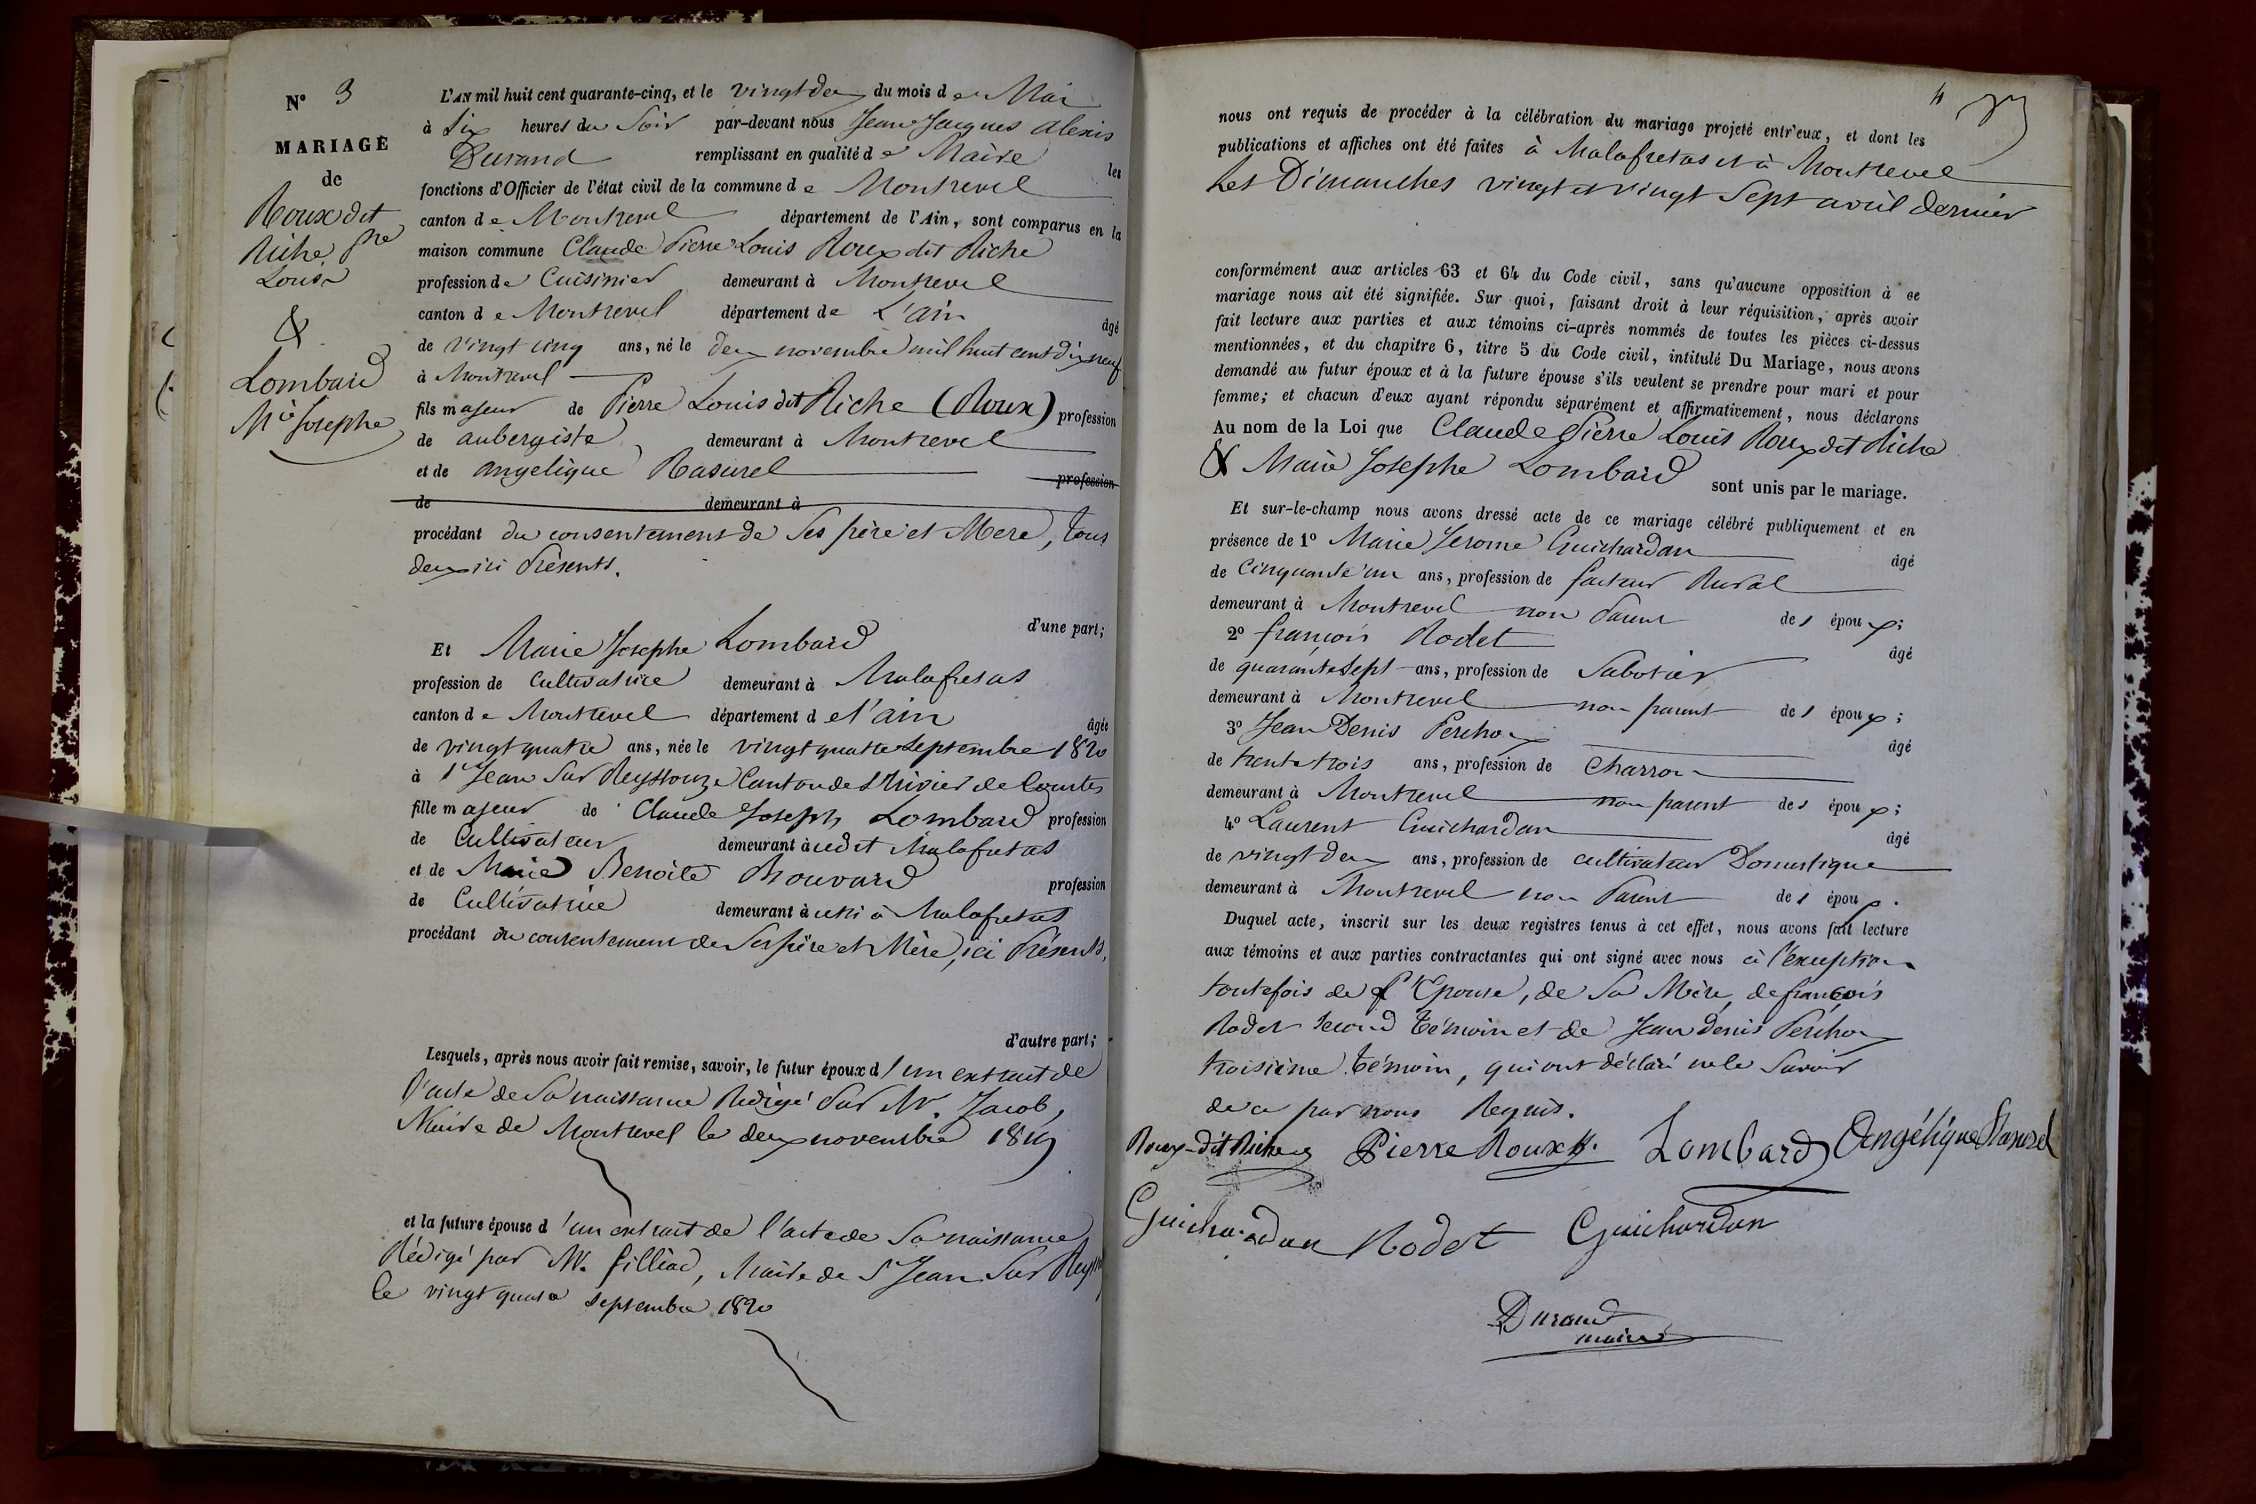 N° 3
MARIAGE
de
Roux dit
Riche Pre
Louis
&
Lombard
Mie Josephe
L'AN mil huit cent quarante-cinq, et le vingt deux du mois de Mai
à Six heures du Soir par-devant nous Jean Jacques Alexis
Durand remplissant en qualité de Maire les
fonctions d'Officier de l'état civil de la commune de Montrevel
canton de Montrevel département de l'Ain, sont comparus en la
maison commune Claude Pierre Louis Roux dit Riche
profession de Cuisinier demeurant à Montrevel
canton de Montrevel département de L'ain âgé
de vingt cinq ans, né le deux novembre mil huit cent dix neuf
à Montrevel
fils majeur de Pierre Louis dit Riche (Roux) profession
de aubergiste demeurant à Montrevel
et de angelique Rasurel profession
de demeurant à
procédant du consentement de Ses père et Mere, tous
deux ici Présents.
d'une part;
Et Marie Josephe Lombard
profession de Cultivatrice demeurant à Malafretas
canton de Montrevel département de l'ain âgée
de vingt quatre ans, née le vingt quatre Septembre 1820
à St Jean Sur Reyssouze Canton de St Trivier de Courtes
fille majeur de Claude Joseph Lombard profession
de Cultivateur demeurant à udit Malafretas
et de Marie Benoite Bouvard profession
de Cultivatrice demeurant à ussi à Malafretas
procédant du consentement de Ses père et Mère, ici Présents,
d'autre part;
Lesquels, après nous avoir fait remise, savoir, le futur époux d'un extrait de
l'acte de Sa naissance Rédigé Par Mr. Jacob,
Maire de Montrevel le deux novembre 1819
et la future épouse d'un extrait de l'acte de Sa naissance
Rédigé par Mr. filliod, Maire de St Jean Sur Reyss
le vingt quatre septembre 1820
4
nous ont requis de procéder à la célébration du mariage projeté entr'eux, et dont les
publications et affiches ont été faites à Malafretas et à Montrevel
Les Dimanches vingt et vingt Sept avril dernier
conformément aux articles 63 et 64 du Code civil, sans qu'aucune opposition à ce
mariage nous ait été signifiée. Sur quoi, faisant droit à leur réquisition, après avoir
fait lecture aux parties et aux témoins ci-après nommés de toutes les pièces ci-dessus
mentionnées, et du chapitre 6, titre 5 du Code civil, intitulé Du Mariage, nous avons
demandé au futur époux et à la future épouse s'ils veulent se prendre pour mari et pour
femme; et chacun d'eux ayant répondu séparément et affirmativement, nous déclarons
Au nom de la Loi que Claude Pierre Louis Roux dit Riche
& Marie Josephe Lombard sont unis par le mariage.
Et sur-le-champ nous avons dressé acte de ce mariage célébré publiquement et en
présence de 1° Marie Jerome Guichardan âgé
de Cinquante un ans, profession de facteur Rural
demeurant à Montrevel non Parent des époux;
2° françois Rodet âgé
de quarante Sept ans, profession de Sabotier
demeurant à Montrevel non parent des époux;
3° Jean Denis Perchoux âgé
de trente trois ans, profession de Charron
demeurant à Montrevel non parent des époux;
4° Laurent Guichardan âgé
de vingt deux ans, profession de cultivateur Domestique
demeurant à Montrevel non Parent des époux.
Duquel acte, inscrit sur les deux registres tenus à cet effet, nous avons fait lecture
aux témoins et aux parties contractantes qui ont signé avec nous à l'exception
toutefois de l'Epouse, de Sa Mère, de francois
Rodet second témoin et de Jean denis Perchoux
troisième témoin, qui ont déclaré ne le Savoir
de ce par nous Requis.
Roux-dit Riche Pierre Roux Lombard Angélique Rasurel
Guichardan Rodet Guichardan
Durand
maire